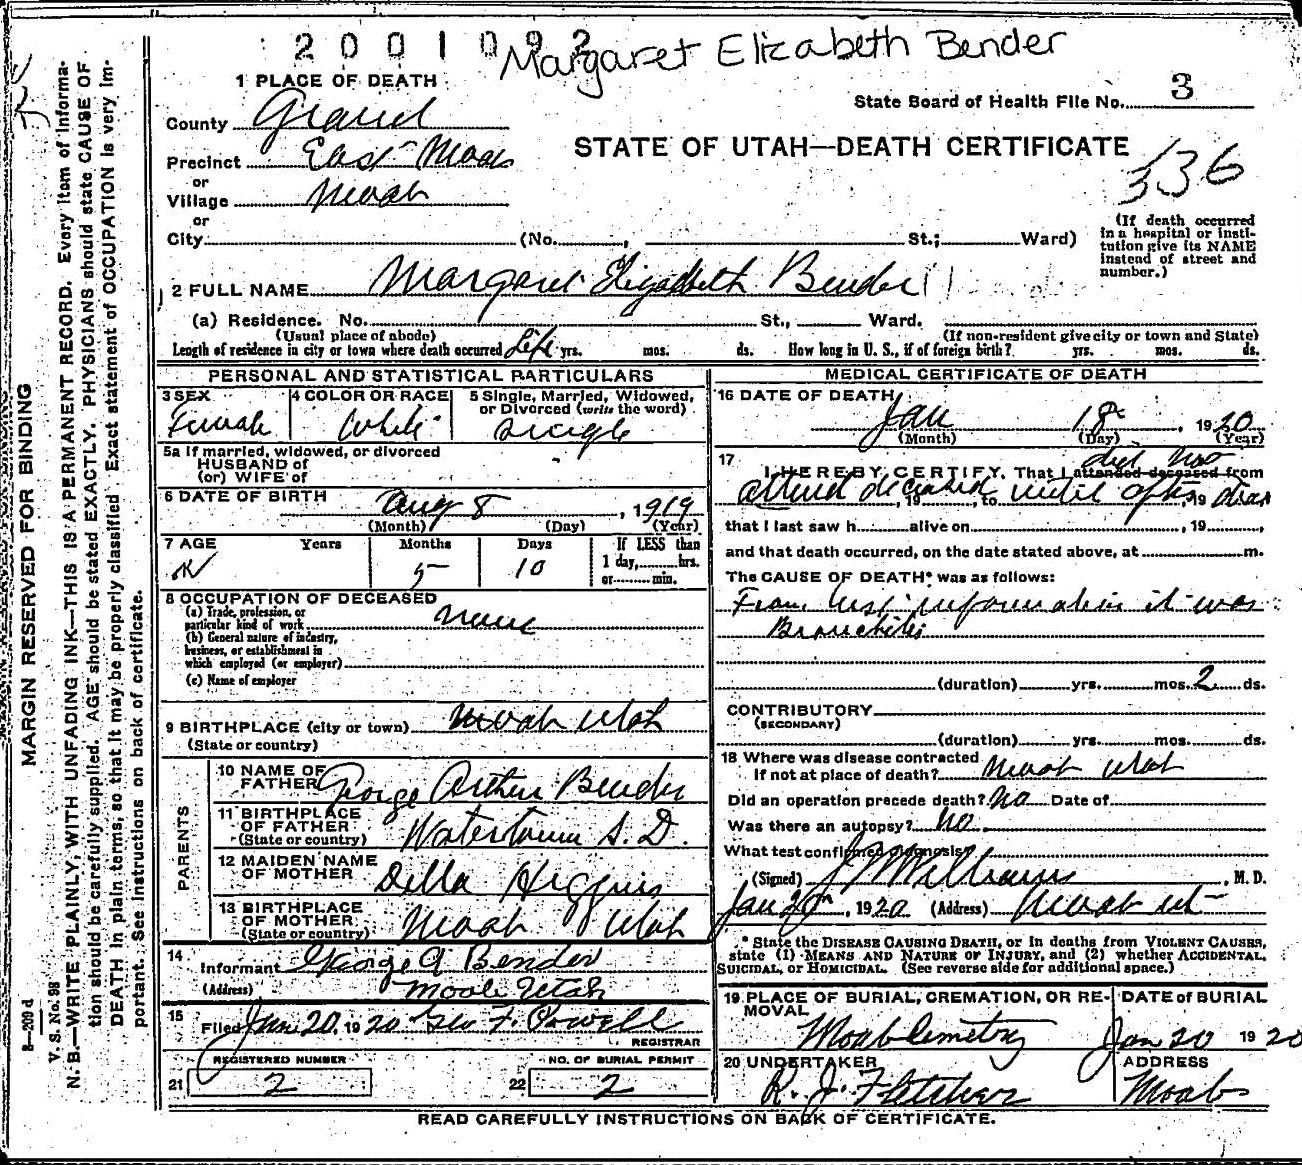 2001092 Margaret Elizabeth Bender
1 PLACE OF DEATH
State Board of Health File No. 3
County Grand
STATE OF UTAH—DEATH CERTIFICATE
336
Precinct East Moab
or
Village Moab
or
City (No. , St.; Ward)
(If death occurred in a hospital or institution give its NAME instead of street and number.)
2 FULL NAME Margaret Elizabeth Bender
(a) Residence. No. St., Ward.
(Usual place of abode) (If non-resident give city or town and State)
Length of residence in city or town where death occurred Life yrs. mos. ds. How long in U. S., if of foreign birth? yrs. mos. ds.
PERSONAL AND STATISTICAL PARTICULARS
3 SEX 4 COLOR OR RACE 5 Single, Married, Widowed, or Divorced (write the word)
Female White Single
5a If married, widowed, or divorced
HUSBAND of
(or) WIFE of
6 DATE OF BIRTH Aug 8, 1919
(Month) (Day) (Year)
7 AGE Years Months Days If LESS than
1 day, hrs.
5 10 or min.
8 OCCUPATION OF DECEASED
(a) Trade, profession, or
particular kind of work none
(b) General nature of industry,
business, or establishment in
which employed (or employer)
(c) Name of employer
9 BIRTHPLACE (city or town) Moab Utah
(State or country)
PARENTS
10 NAME OF
FATHER George Arthur Bender
11 BIRTHPLACE
OF FATHER
(State or country) Watertown S. D.
12 MAIDEN NAME
OF MOTHER Della Higgins
13 BIRTHPLACE
OF MOTHER
(State or country) Moab Utah
14
Informant George A Bender
(Address) Moab Utah
15
Filed Jan 20, 1920 Geo F. Powell
REGISTRAR
REGISTERED NUMBER NO. OF BURIAL PERMIT
21 2 22 2
MEDICAL CERTIFICATE OF DEATH
16 DATE OF DEATH
Jan 18, 1920
(Month) (Day) (Year)
17 did not
I HEREBY CERTIFY, That I attended deceased from
attend deceased, 19 , to until after, 19
that I last saw h alive on , 19 ,
and that death occurred, on the date stated above, at m.
The CAUSE OF DEATH* was as follows:
From best information it was
Bronchitis
(duration) yrs. mos. 2 ds.
CONTRIBUTORY
(SECONDARY)
(duration) yrs. mos. ds.
18 Where was disease contracted
If not at place of death? Moab Utah
Did an operation precede death? No Date of
Was there an autopsy? No.
What test confirmed diagnosis?
(Signed) J Williams, M. D.
Jan 20, 1920 (Address) Moab Ut
* State the DISEASE CAUSING DEATH, or in deaths from VIOLENT CAUSES,
state (1) MEANS AND NATURE OF INJURY, and (2) whether ACCIDENTAL,
SUICIDAL, or HOMICIDAL. (See reverse side for additional space.)
19 PLACE OF BURIAL, CREMATION, OR RE- DATE of BURIAL
MOVAL
Moab Cemetery Jan 20 1920
20 UNDERTAKER ADDRESS
R. J. Fletcher Moab
READ CAREFULLY INSTRUCTIONS ON BACK OF CERTIFICATE.
MARGIN RESERVED FOR BINDING
B—209 d
V. S. No. 98
N. B.—WRITE PLAINLY, WITH UNFADING INK—THIS IS A PERMANENT RECORD. Every item of informa-
tion should be carefully supplied. AGE should be stated EXACTLY. PHYSICIANS should state CAUSE OF
DEATH in plain terms, so that it may be properly classified. Exact statement of OCCUPATION is very im-
portant. See instructions on back of certificate.